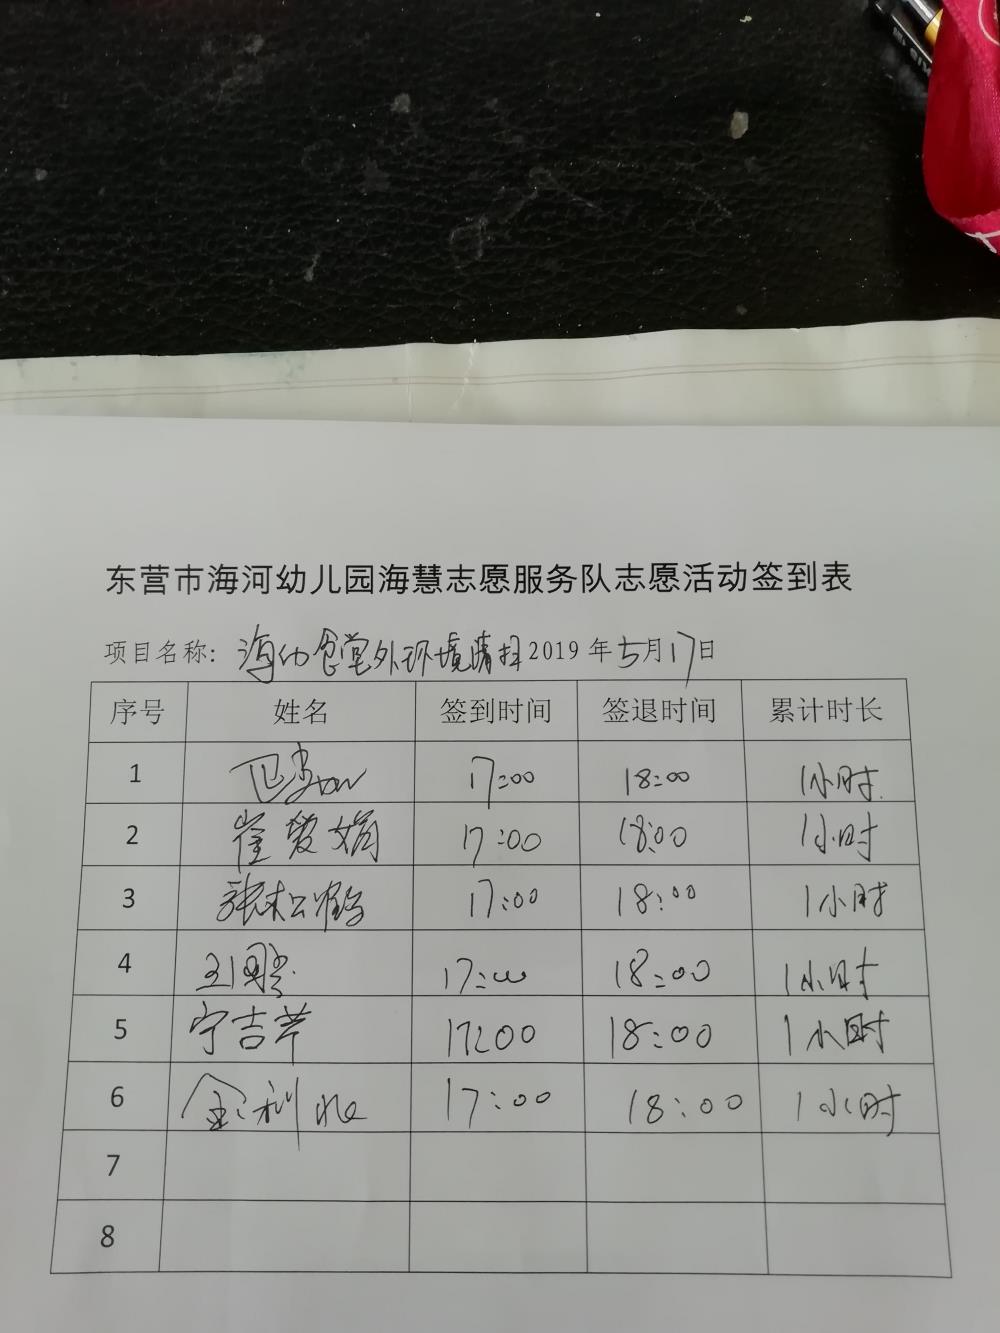 东营市海河幼儿园海慧志愿服务队志愿活动签到表
项目名称: 海幼食堂外环境清扫 2019 年 5月17日
序号 姓名 签到时间 签退时间 累计时长
1 17:00 18:00 1小时
2 崔爱娟 17:00 18:00 1小时
3 张松鹤 17:00 18:00 1小时
4 17:00 18:00 1小时
5 宁吉芹 17:00 18:00 1小时
6 金利 17:00 18:00 1小时
7
8